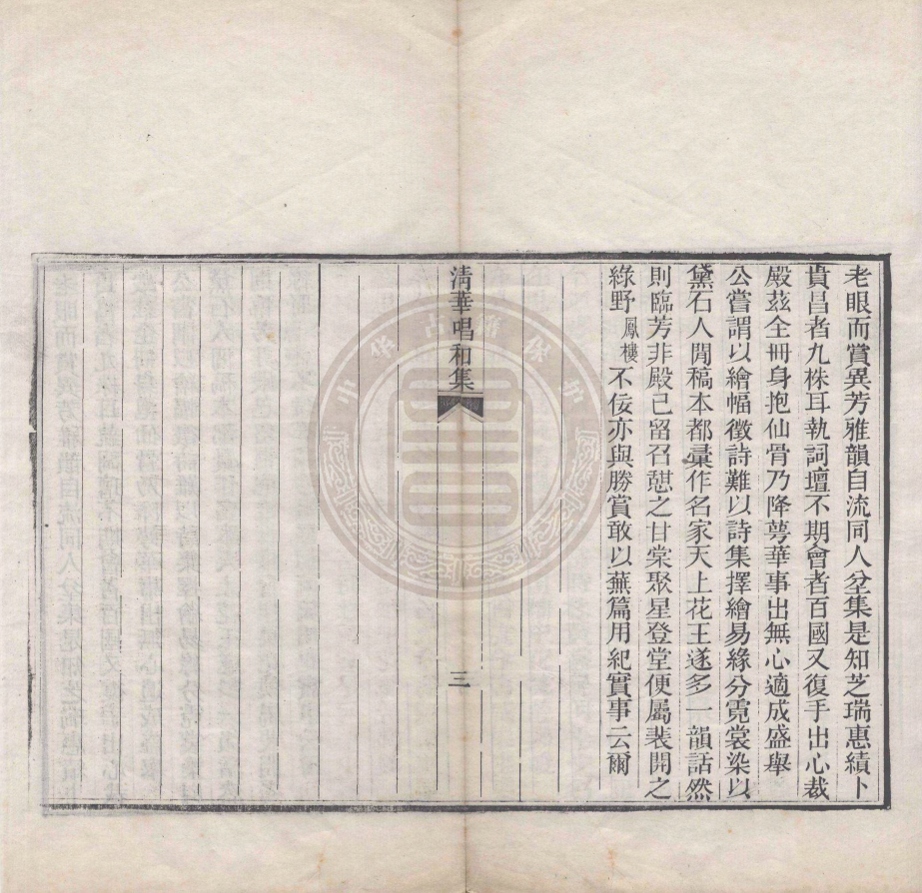 老眼而賞異芳雅韻自流同人坌集是知芝瑞惠績卜
貴昌者九株耳執詞壇不期會者百國又復手出心裁
殿茲全冊身抱仙骨乃降萼華事出無心適成盛舉
公嘗謂以繪幅徵詩難以詩集擇繪易緣分霓裳染以
黛石人閒稿本都彙作名家天上花王遂多一韻話然
則臨芳非殿已留召憩之甘棠聚星登堂便屬裴開之
綠野鳳樓不佞亦與勝賞敢以蕪篇用紀實事云爾
清華唱和集
三